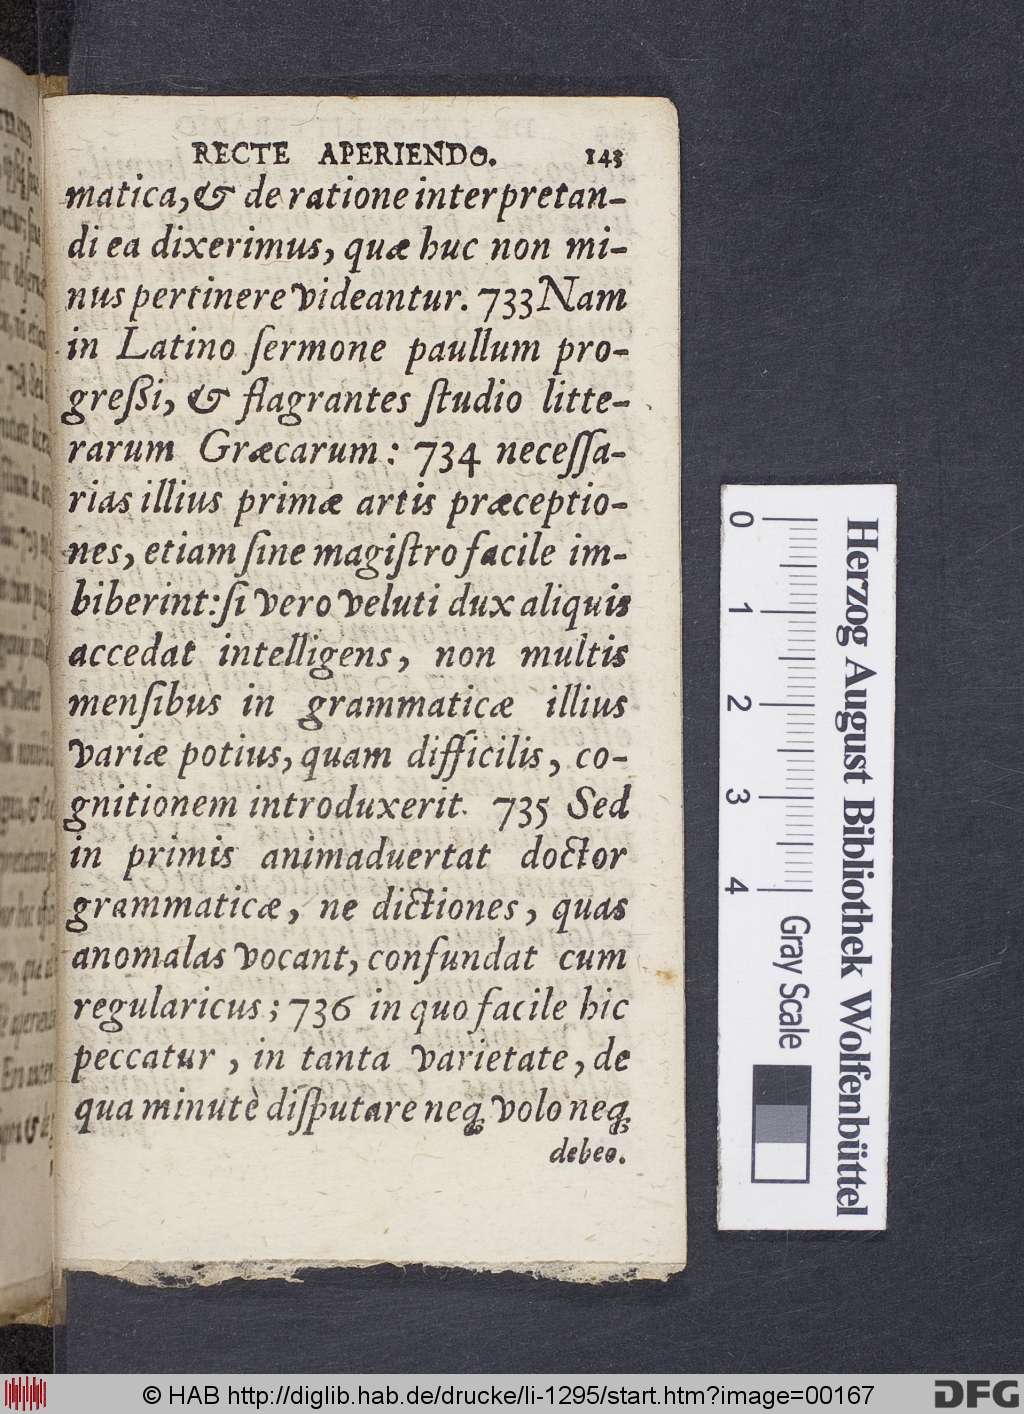 RECTE APERIENDO. 143
matica, & de ratione interpretan-
di ea dixerimus, quæ huc non mi-
nus pertinere videantur. 733 Nam
in Latino ſermone paullum pro-
greßi, & flagrantes ſtudio litte-
rarum Græcarum: 734 neceſſa-
rias illius primæ artis præceptio-
nes, etiam ſine magiſtro facile im-
biberint: ſi vero veluti dux aliquis
accedat intelligens, non multis
menſibus in grammaticæ illius
variæ potius, quam difficilis, co-
gnitionem introduxerit. 735 Sed
in primis animaduertat doctor
grammaticæ, ne dictiones, quas
anomalas vocant, confundat cum
regularicus; 736 in quo facile hic
peccatur, in tanta varietate, de
qua minutè diſputare neq; volo neq;
debeo.
0
1
2
3
4
Gray Scale
Herzog August Bibliothek Wolfenbüttel
© HAB http://diglib.hab.de/drucke/li-1295/start.htm?image=00167
DFG